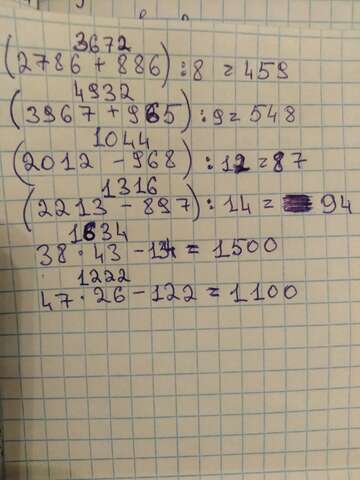 3672
(2786 + 886) : 8 = 459
4932
(3967 + 965) : 9 = 548
1044
(2012 - 968) : 12 = 87
1316
(2213 - 897) : 14 = 94
1634
38 · 43 - 134 = 1500
1222
47 · 26 - 122 = 1100